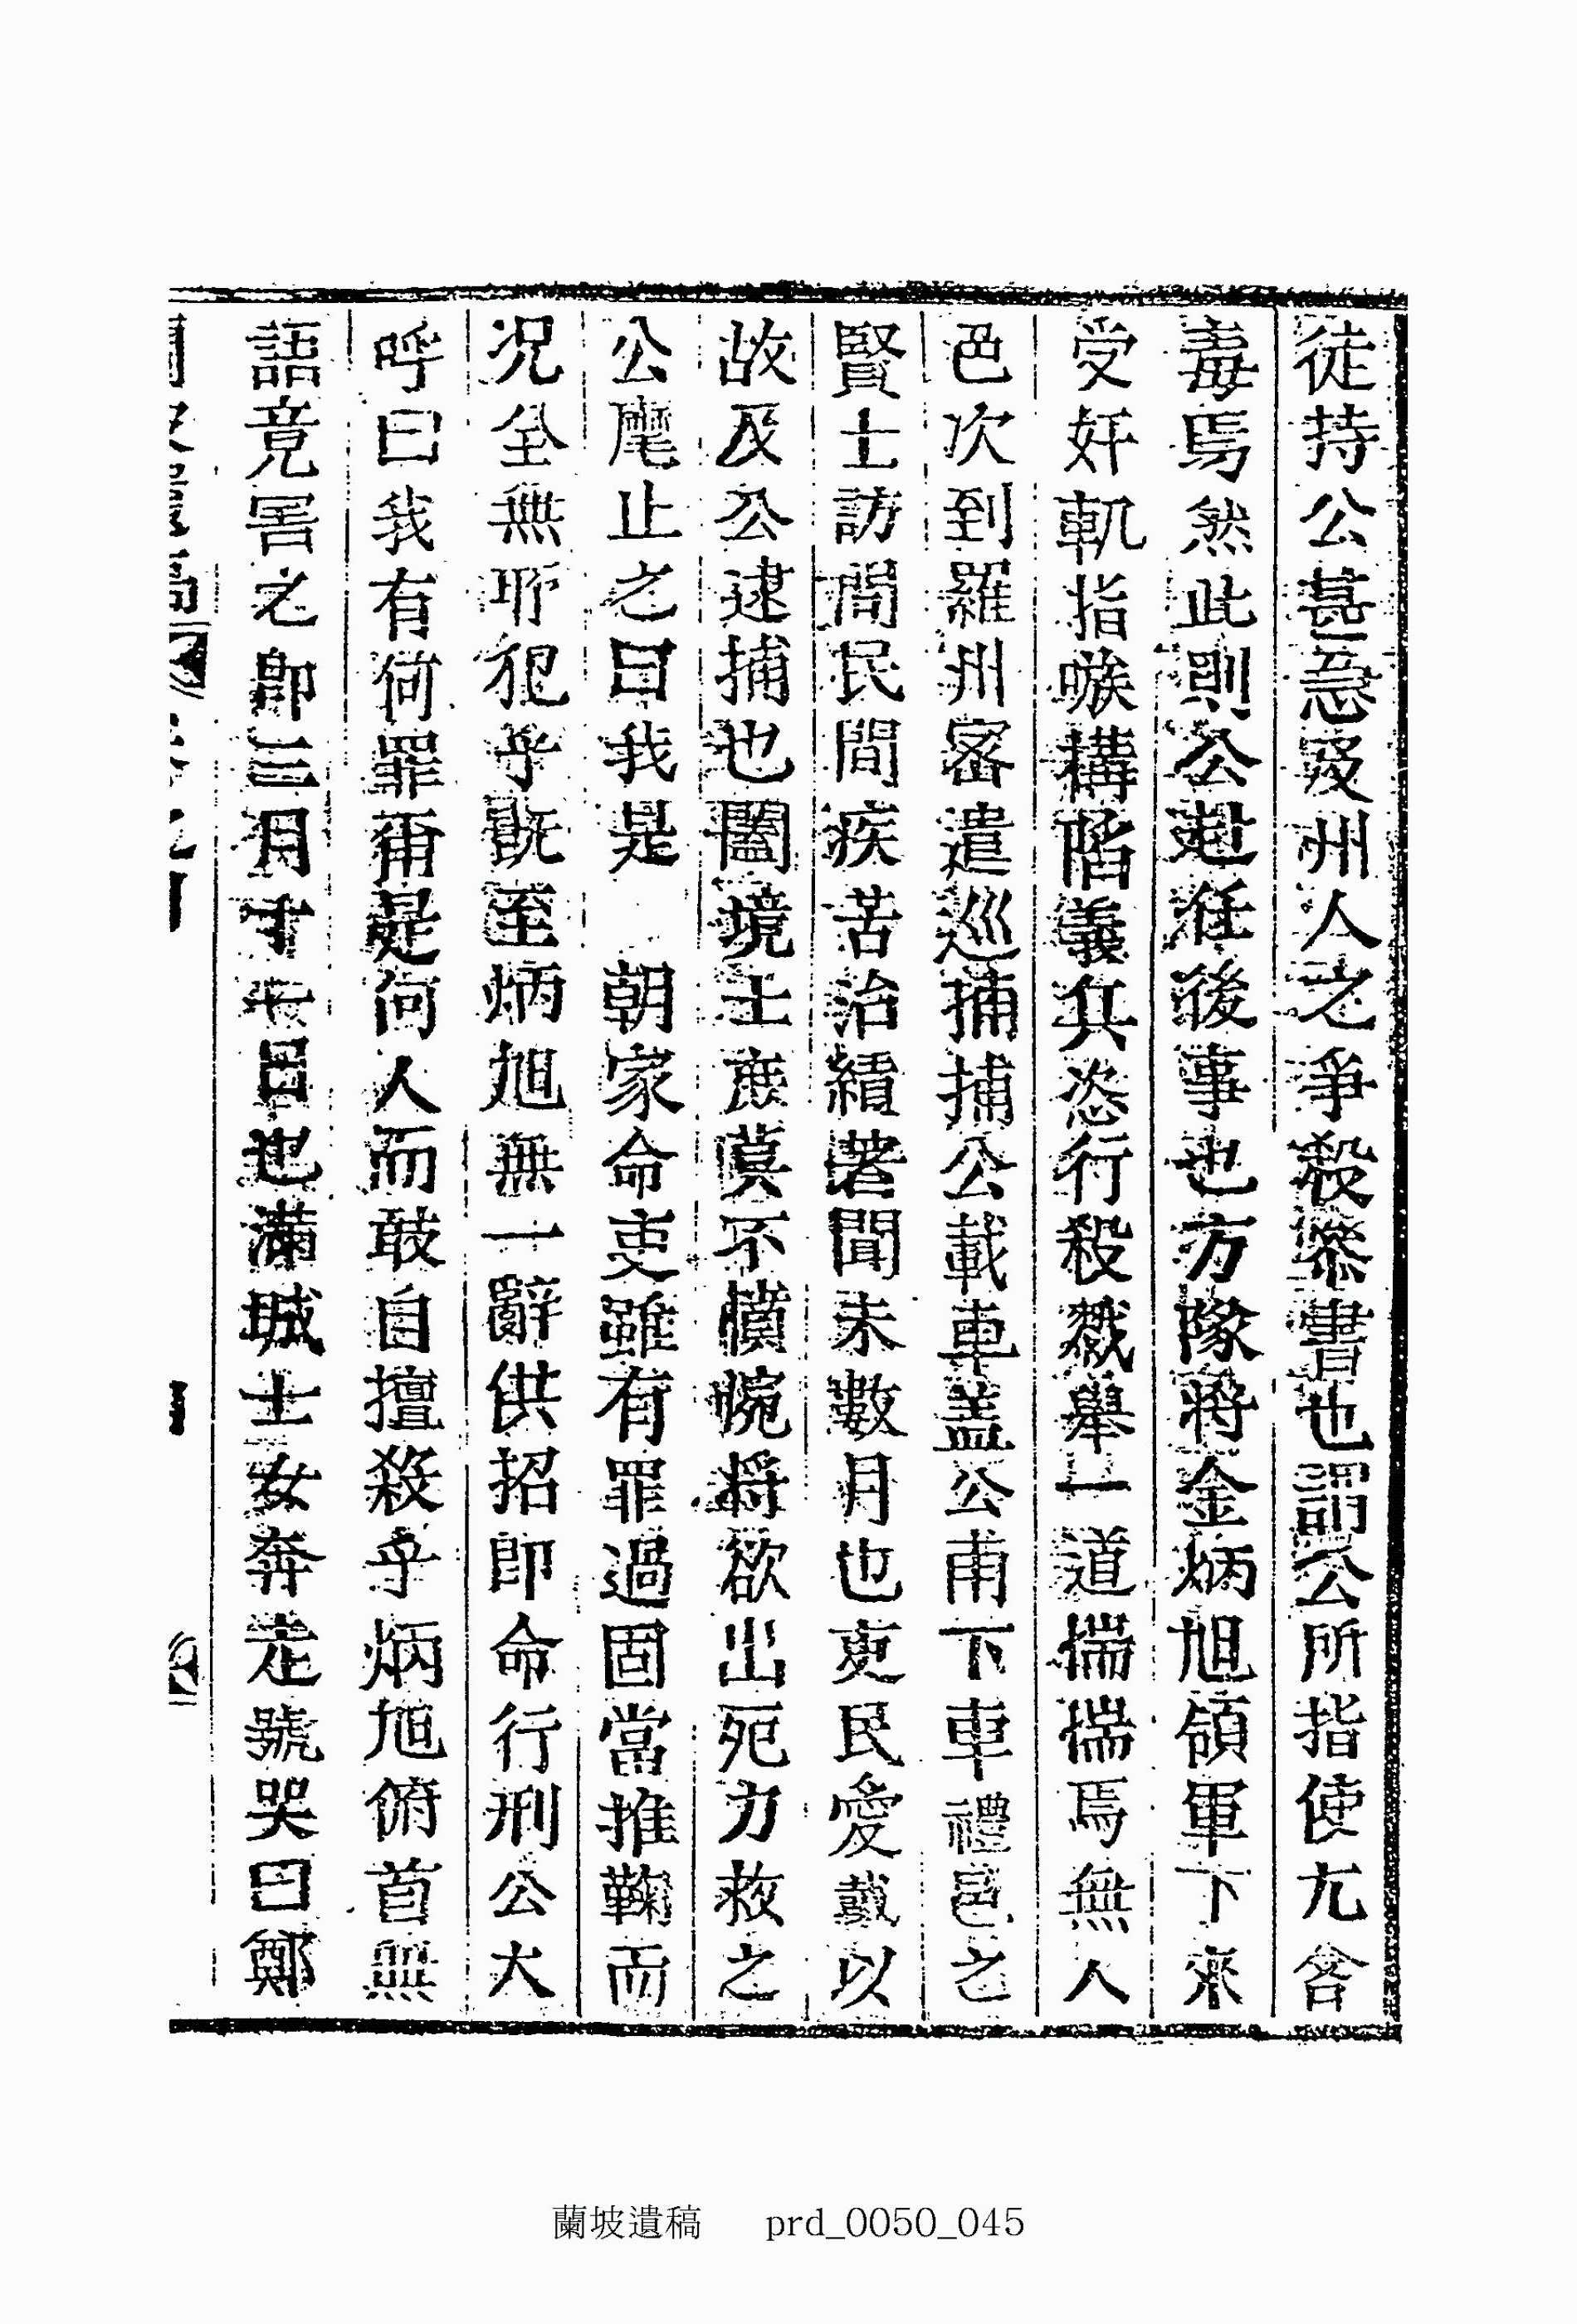 徒持公甚急及州人之爭殺叅書也謂公所指使尤含
毒焉然此則公赴任後事也方隊將金炳旭領軍下來
受奸軌指嗾構陷義兵恣行殺戮擧一道惴惴焉無人
色次到羅州密遣巡捕捕公載車盖公甫下車禮邑之
賢士訪問民間疾苦治績著聞未數月也吏民愛戴以
故及公逮捕也闔境士庶莫不憤惋將欲出死力救之
公麾止之曰我是 朝家命吏雖有罪過固當推鞠而
况全無所犯乎既至炳旭無一辭供招卽命行刑公大
呼曰我有何罪甭是何人而敢自擅殺乎炳旭俯首無
語竟害之卽三月十七日也滿城士女奔走號哭曰鄭
蘭坡遺稿 prd_0050_045